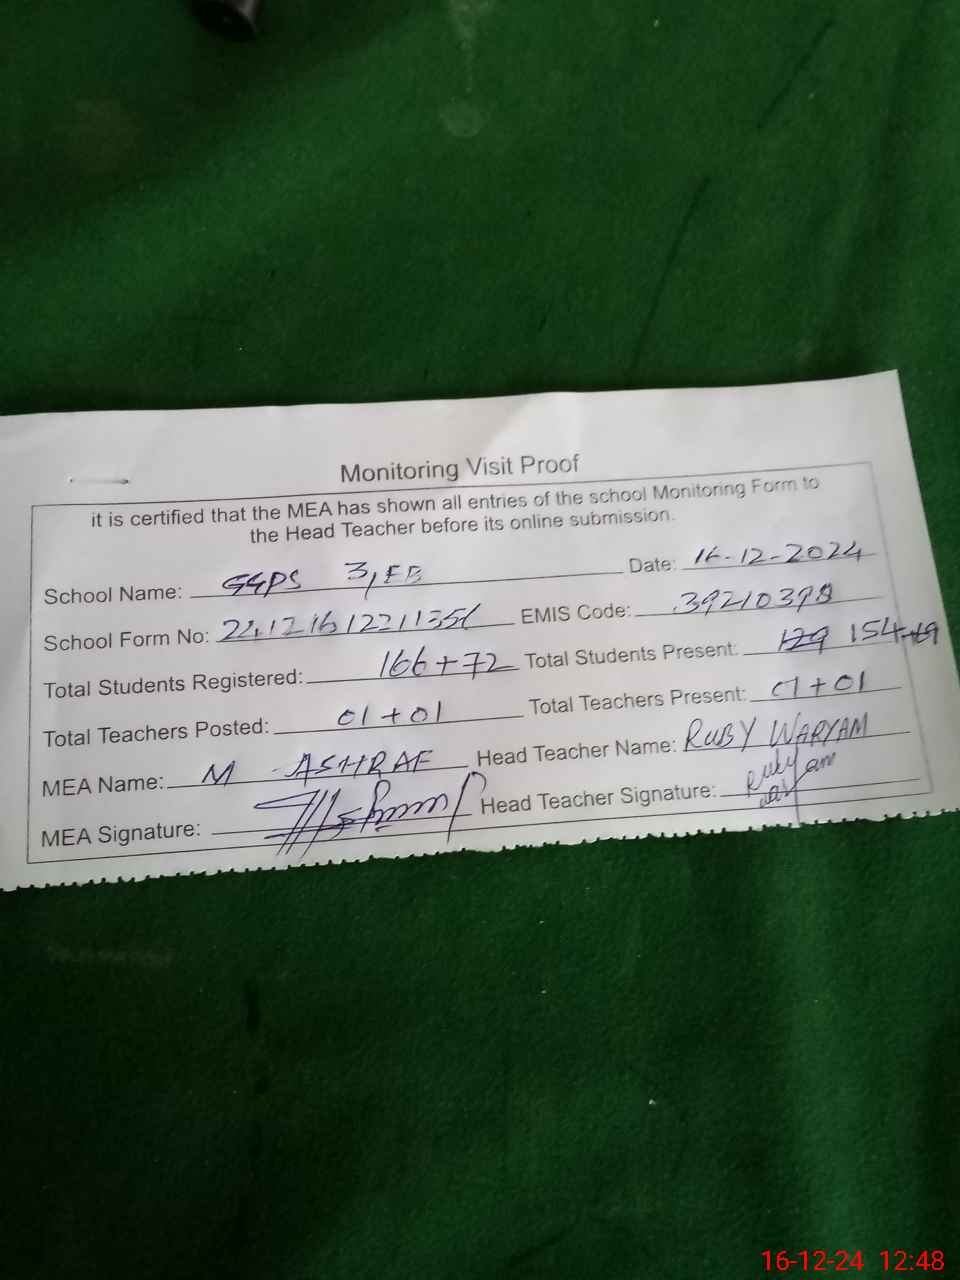 Monitoring Visit Proof
it is certified that the MEA has shown all entries of the school Monitoring Form to
the Head Teacher before its online submission.
School Name: GGPS 3,EB Date: 16-12-2024
School Form No: EMIS Code: 39210398
Total Students Registered: 166+72 Total Students Present: 129 154+69
Total Teachers Posted: 01+01 Total Teachers Present: 01+01
MEA Name: M ASHRAF Head Teacher Name: RUBY WARYAM
MEA Signature: Head Teacher Signature: Ruby
16-12-24 12:48